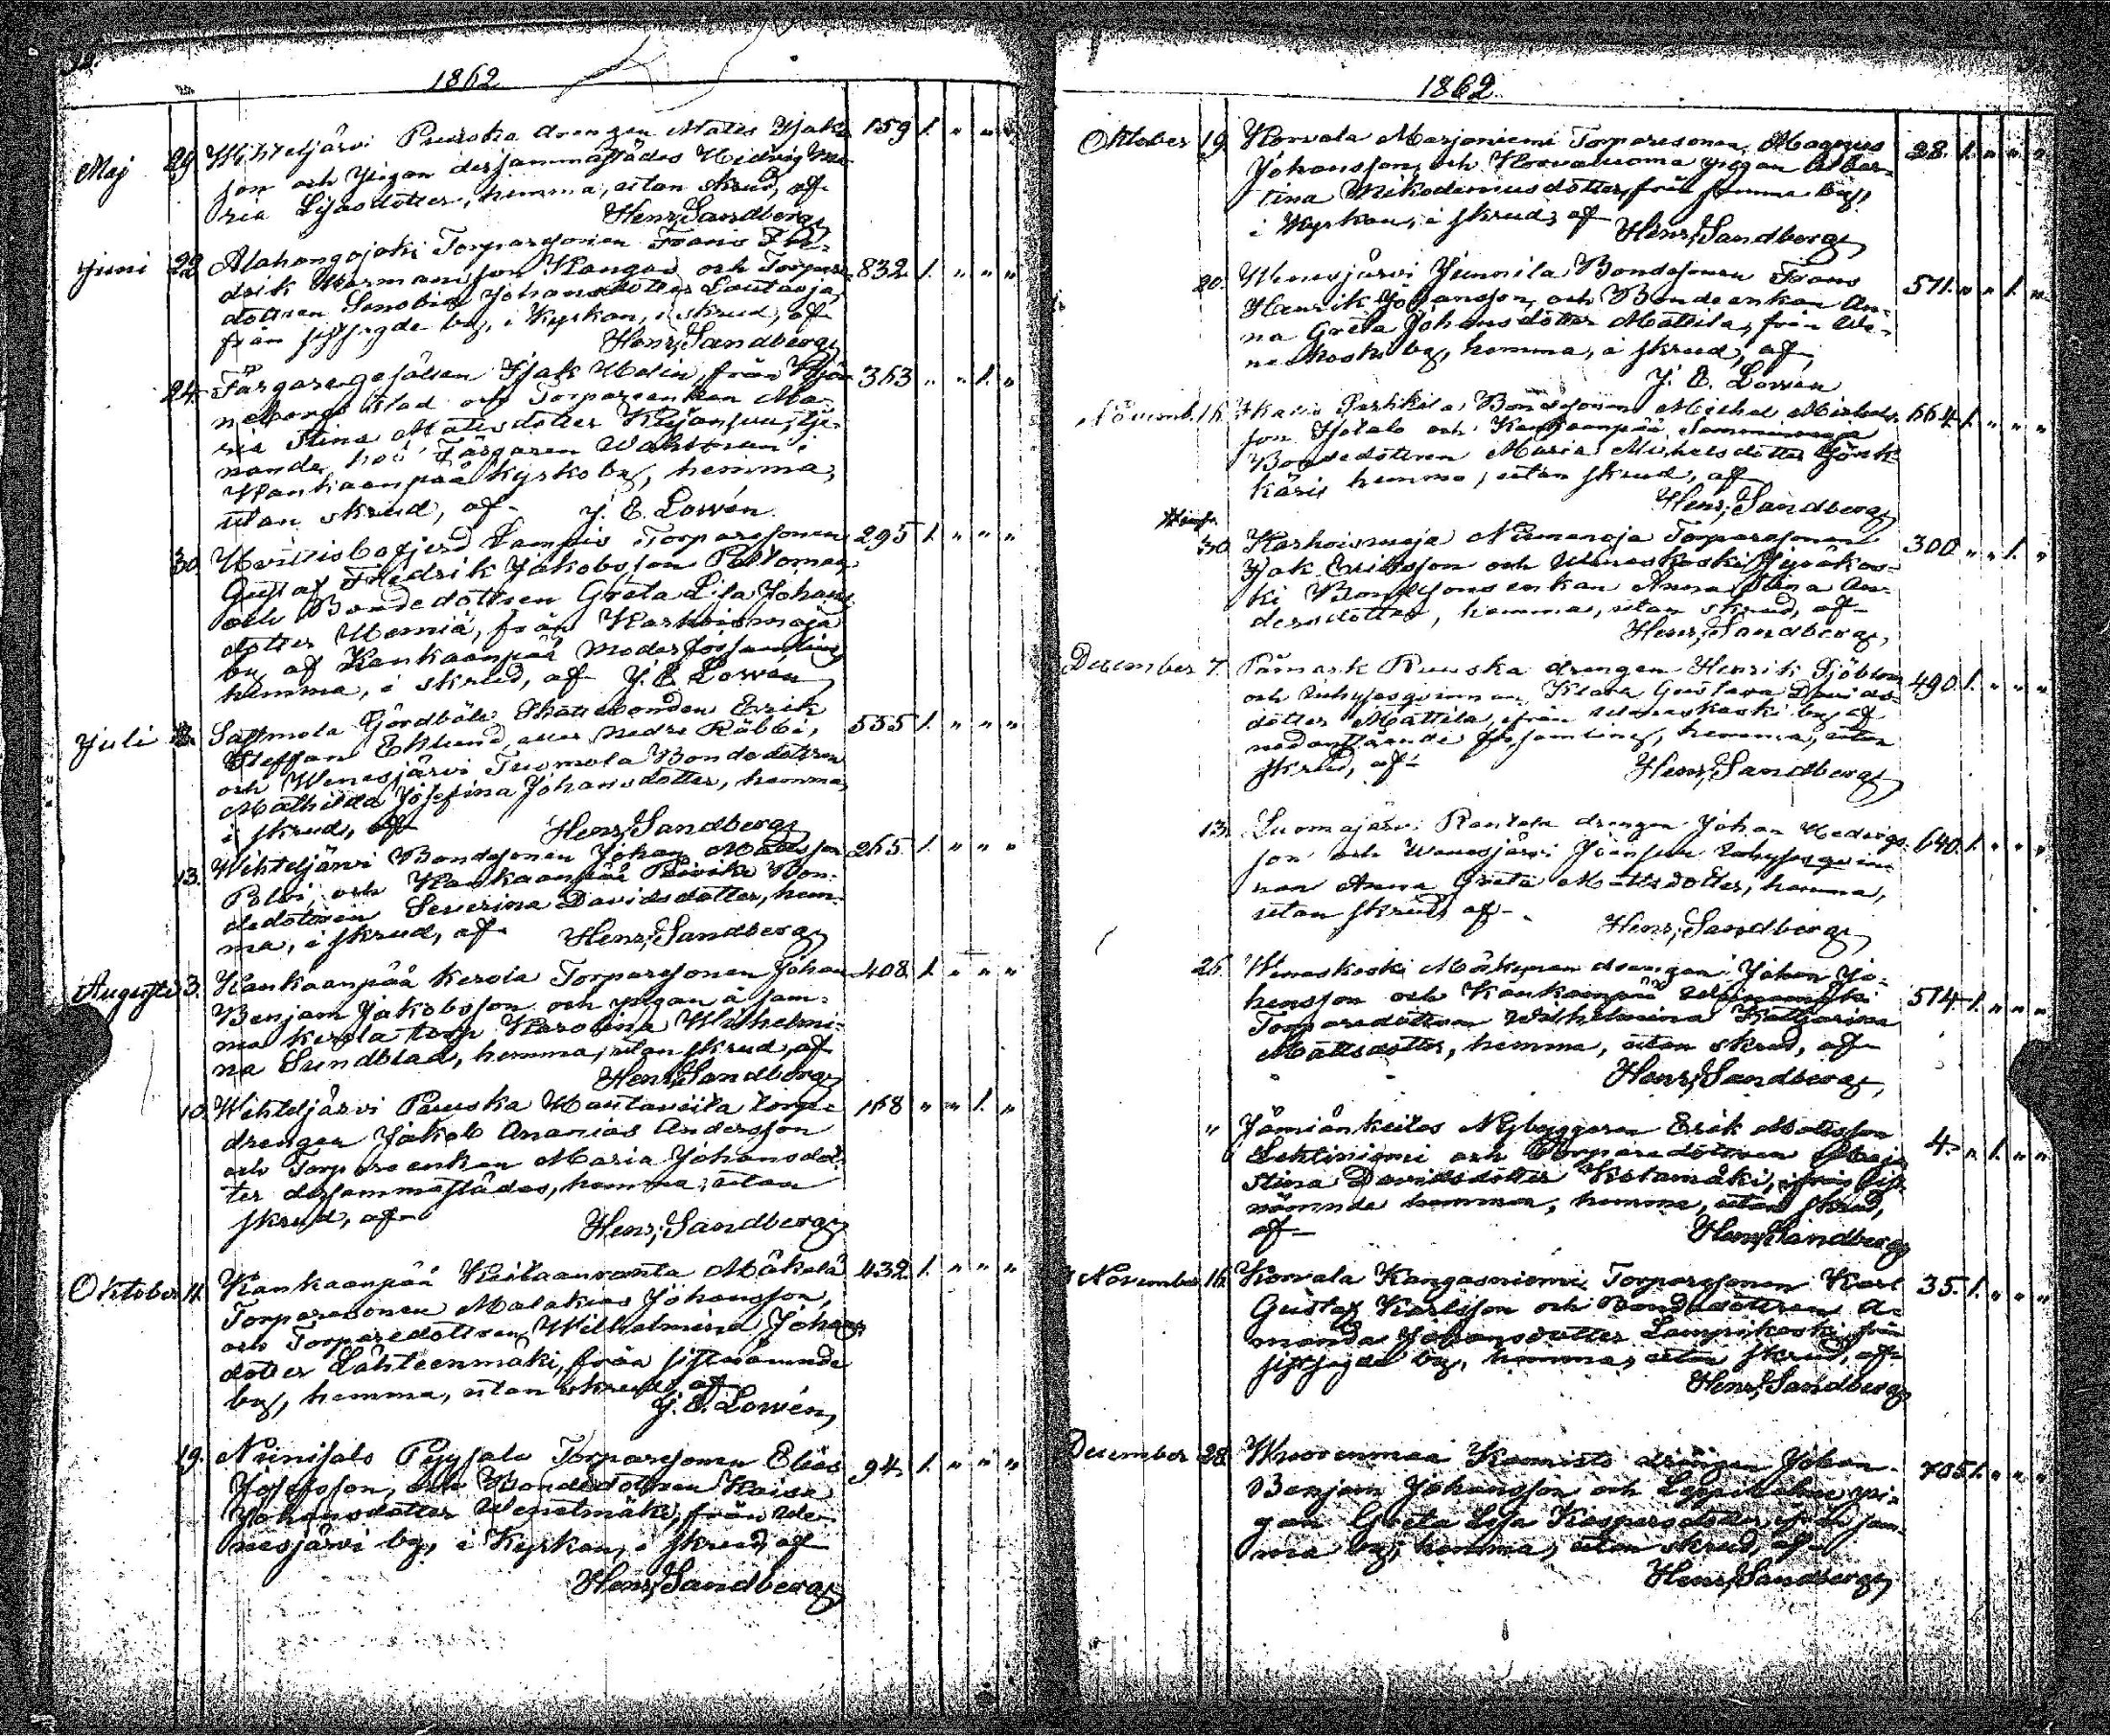 1862
Maj 29. Wihteljärvi Pruska drengen Mats Isaks- 159 1. " " "
son och pigan dersammastädes Hedvig Ma-
ria Lisasdotter, hemma, utan skrud, af
Henr. Sandberg,
Juni 22. Alahongojoki Torparesonen Frans Fre- 832 1. " " "
drik Hermansson Kangas och Torpare-
dottren Senobia Johansdotter Lautaoja,
från sistsagde by, i Kyrkan, i skrud, af
Henr. Sandberg,
24. Färgaregesällen Isak Malin, från Björ- 363 " " 1. "
neborgs stad och Torpareenkan Ma-
ria Stina Matsdotter Kujansuu, tje-
nande hos Färgaren Wahlroun i
Kankaanpää Kyrkoby, hemma,
utan skrud, af J. E. Lowén.
30. Hvittisbofjerd Lampis Torparesonen 295 1. " " "
Gustaf Fredrik Jakobsson Peltomaa
och Bondedottren Greta Lisa Johans-
dotter Uerniä, från Karhoismaja
by af Kankaanpää Moderförsamling
hemma, i skrud, af J. E. Lowén
Juli Sastmola Gårdbäle Skattebonden Erik 555 1. " " "
Steffan Eklund, eller nedre Räbbi,
och Wenesjärvi Tuomola Bondedottren
Mathilda Josefina Johansdotter, hemma,
i skrud, af Henr. Sandberg,
13. Wihteljärvi Bondesonen Johan Matsson 265 1. " " "
Polvi, och Kankaanpää Päivike Bon-
dedottren Severina Davidsdotter, hem-
ma, i skrud, af Henr. Sandberg,
Augusti 3. Kankaanpää Kerola Torparesonen Johan 408 1. " " "
Benjam Jakobsson och pigan å sam-
ma kerola torp Karolina Wilhelmi-
na Sundblad, hemma, utan skrud, af
Henr. Sandberg,
10. Wihteljärvi Pruska Hautaviita torp- 168 " " 1. "
drengen Jakob Ananias Andersson
och Torpareenkan Maria Johansdot-
ter dersammastädes, hemma, utan
skrud, af Henr. Sandberg,
Oktober 11. Kankaanpää Keilaanranta Mäkelä 432 1. " " "
Torparesonen Malakias Johansson,
och Torparedottren Wilhelmina Johans-
dotter Lähteenmäki, från sistnämnde
by, hemma, utan skrud, af
J. E. Lowén,
19. Niinisalo Pyysalo Torparesonen Elias 94. 1. " " "
Josefsson, och Bondedottren Kaisa
Johansdotter Wenetmäki, från We-
nesjärvi by, i Kyrkan, i skrud, af
Henr. Sandberg,
1862.
Oktober 19. Korvala Marjoniemi Torparesonen Magnus 28. 1. " " "
Johansson, och Korvaluoma pigan Alber-
tina Nikodemusdotter, från samma by,
i Kyrkan, i skrud, af
Henr. Sandberg,
20. Wenesjärvi Junnila Bondesonen Frans 571. " " 1. "
Henrik Johansson, och Bondeenkan An-
na Greta Johansdotter Mattila, från We-
neskoski by, hemma, i skrud, af
J. E. Lowén
Novemb. 16. Pertikila Bondesonen Michel Michels- 664 1. " " "
son Isotalo och Kankaanpää
Bondedottren Maria Michelsdotter
hemma, utan skrud, af
Henr. Sandberg,
30. Karhoismaja Niemenoja Torparesonen 300 " " 1. "
Isak Eriksson och Weneskoski
Bondesons enkan Anna Stina An-
dersdotter, hemma, utan skrud, af
Henr. Sandberg,
December 7. Påmark Ruuska drengen Henrik Sjöblom 490 1. " " "
och Inhysesqvinnan Klara Gustava Davids-
dotter Mattila, från Weneskoski by af
nedanstående församling, hemma, utan
skrud, af Henr. Sandberg,
13. Luomajärvi Rantala drengen Johan Hedvigs- 640. 1. " " "
son och Wenesjärvi Inhysesqvin-
nan Anna Greta Mattsdotter, hemma,
utan skrud, af
Henr. Sandberg,
26. Weneskoski drengen Johan Jo- 574 1. " " "
hansson och Kankaanpää
Torparedottren Wilhelmina Katharina
Mattsdotter, hemma, utan skrud, af
Henr. Sandberg,
" Jämiänkeitas Nybyggaren Erik Matsson 4. " 1. " "
Lehtiniemi och Torparedottren Maja
Stina Davidsdotter Kotamäki, från sist-
nämnde hemman, hemma, utan skrud,
af Henr. Sandberg
November 16. Korvala Kangasniemi Torparesonen Karl 35. 1. " " "
Gustaf Karlsson och Bondedottren A-
manda Johansdotter Lampinkoski, från
sistsagde by, hemma, utan skrud, af
Henr. Sandberg
December 28. Kamisto drängen Johan 705 1. " " "
Benjam Johansson och pi-
gan Greta Lisa Kaspersdotter, från sam-
ma by, hemma, utan skrud, af
Henr. Sandberg,